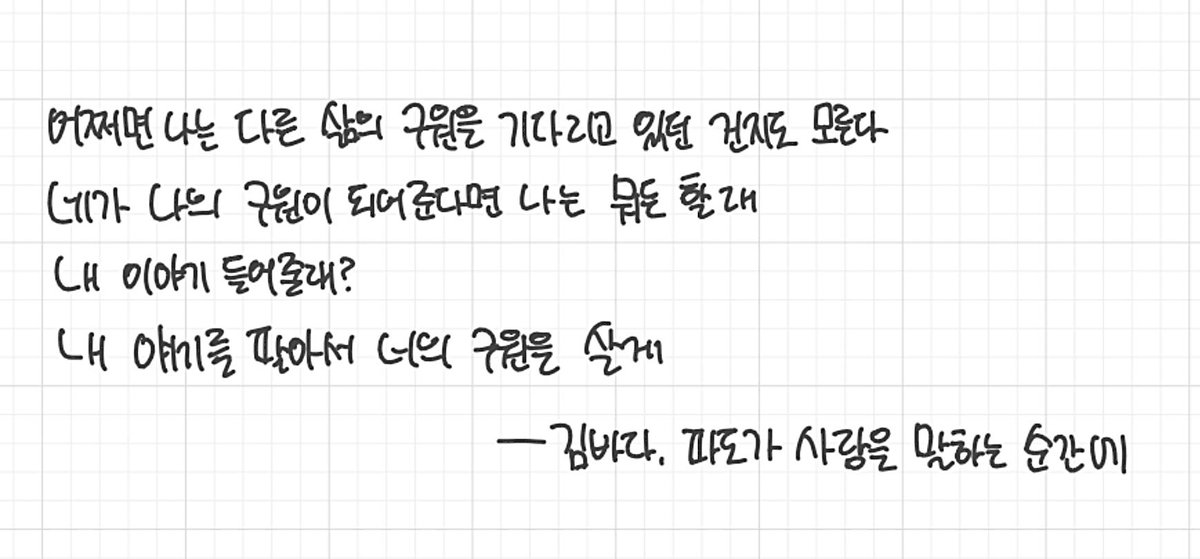 어쩌면 나는 다른 삶의 구원을 기다리고 있던 건지도 모른다
네가 나의 구원이 되어준다면 나는 뭐든 할래
내 이야기 들어줄래?
내 얘기를 팔아서 너의 구원을 살게
—김바다. 파도가 사랑을 말하는 순간에